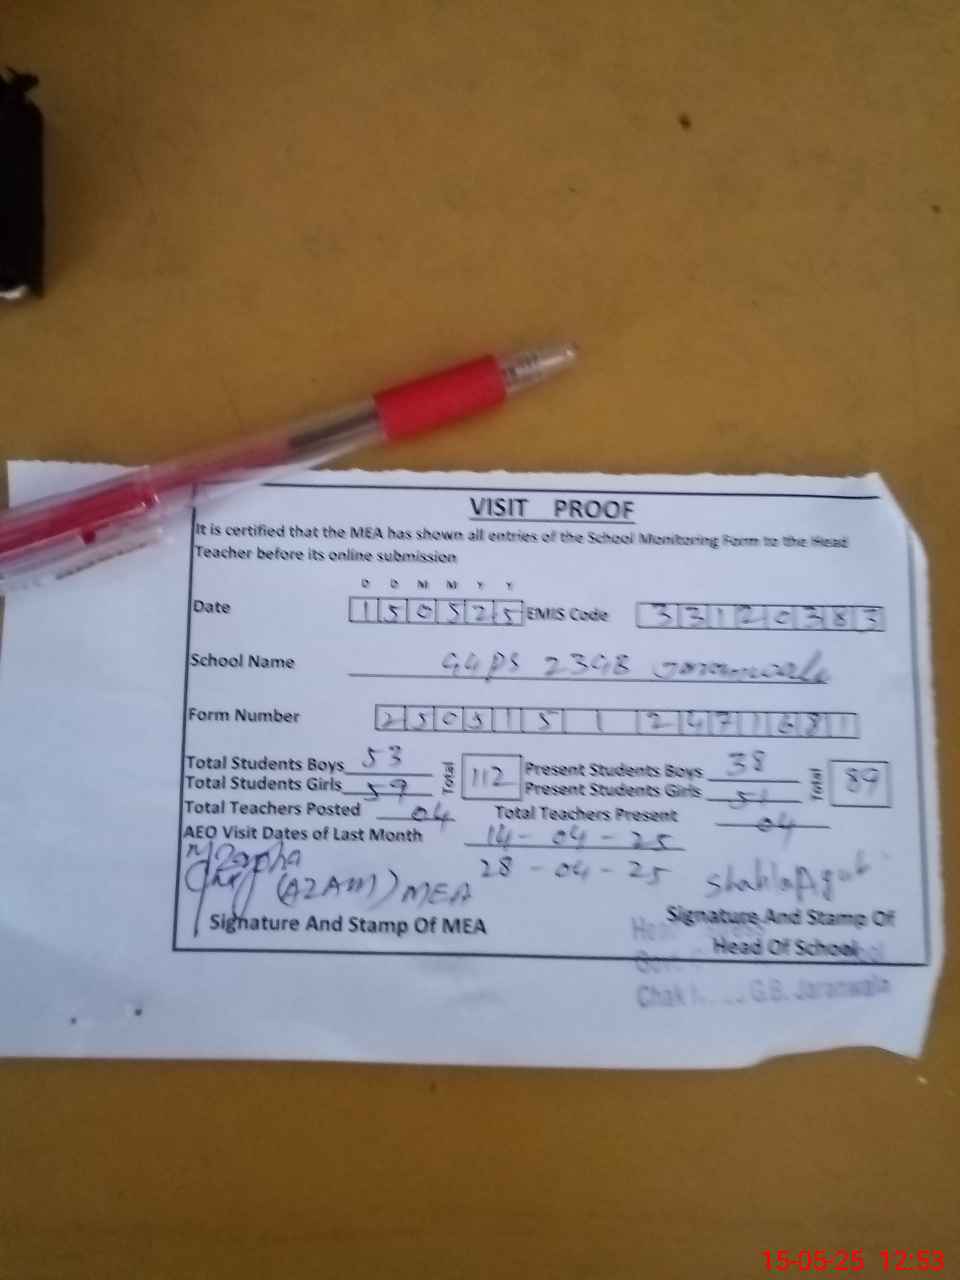 VISIT PROOF
It is certified that the MEA has shown all entries of the School Monitoring Form to the Head
Teacher before its online submission
D D M M Y Y
Date 150525 EMIS Code 33120383
School Name GGPS 23GB Jaranwala
Form Number 250515 1 2471681
Total Students Boys 53 Total 112 Present Students Boys 38 Total 89
Total Students Girls 59 Present Students Girls 51
Total Teachers Posted 04 Total Teachers Present 04
AEO Visit Dates of Last Month 14-04-25
28-04-25
(AZAM) MEA
Signature And Stamp Of MEA
Signature And Stamp Of
Head Of School
Chak G.B. Jaranwala
15-05-25 12:53